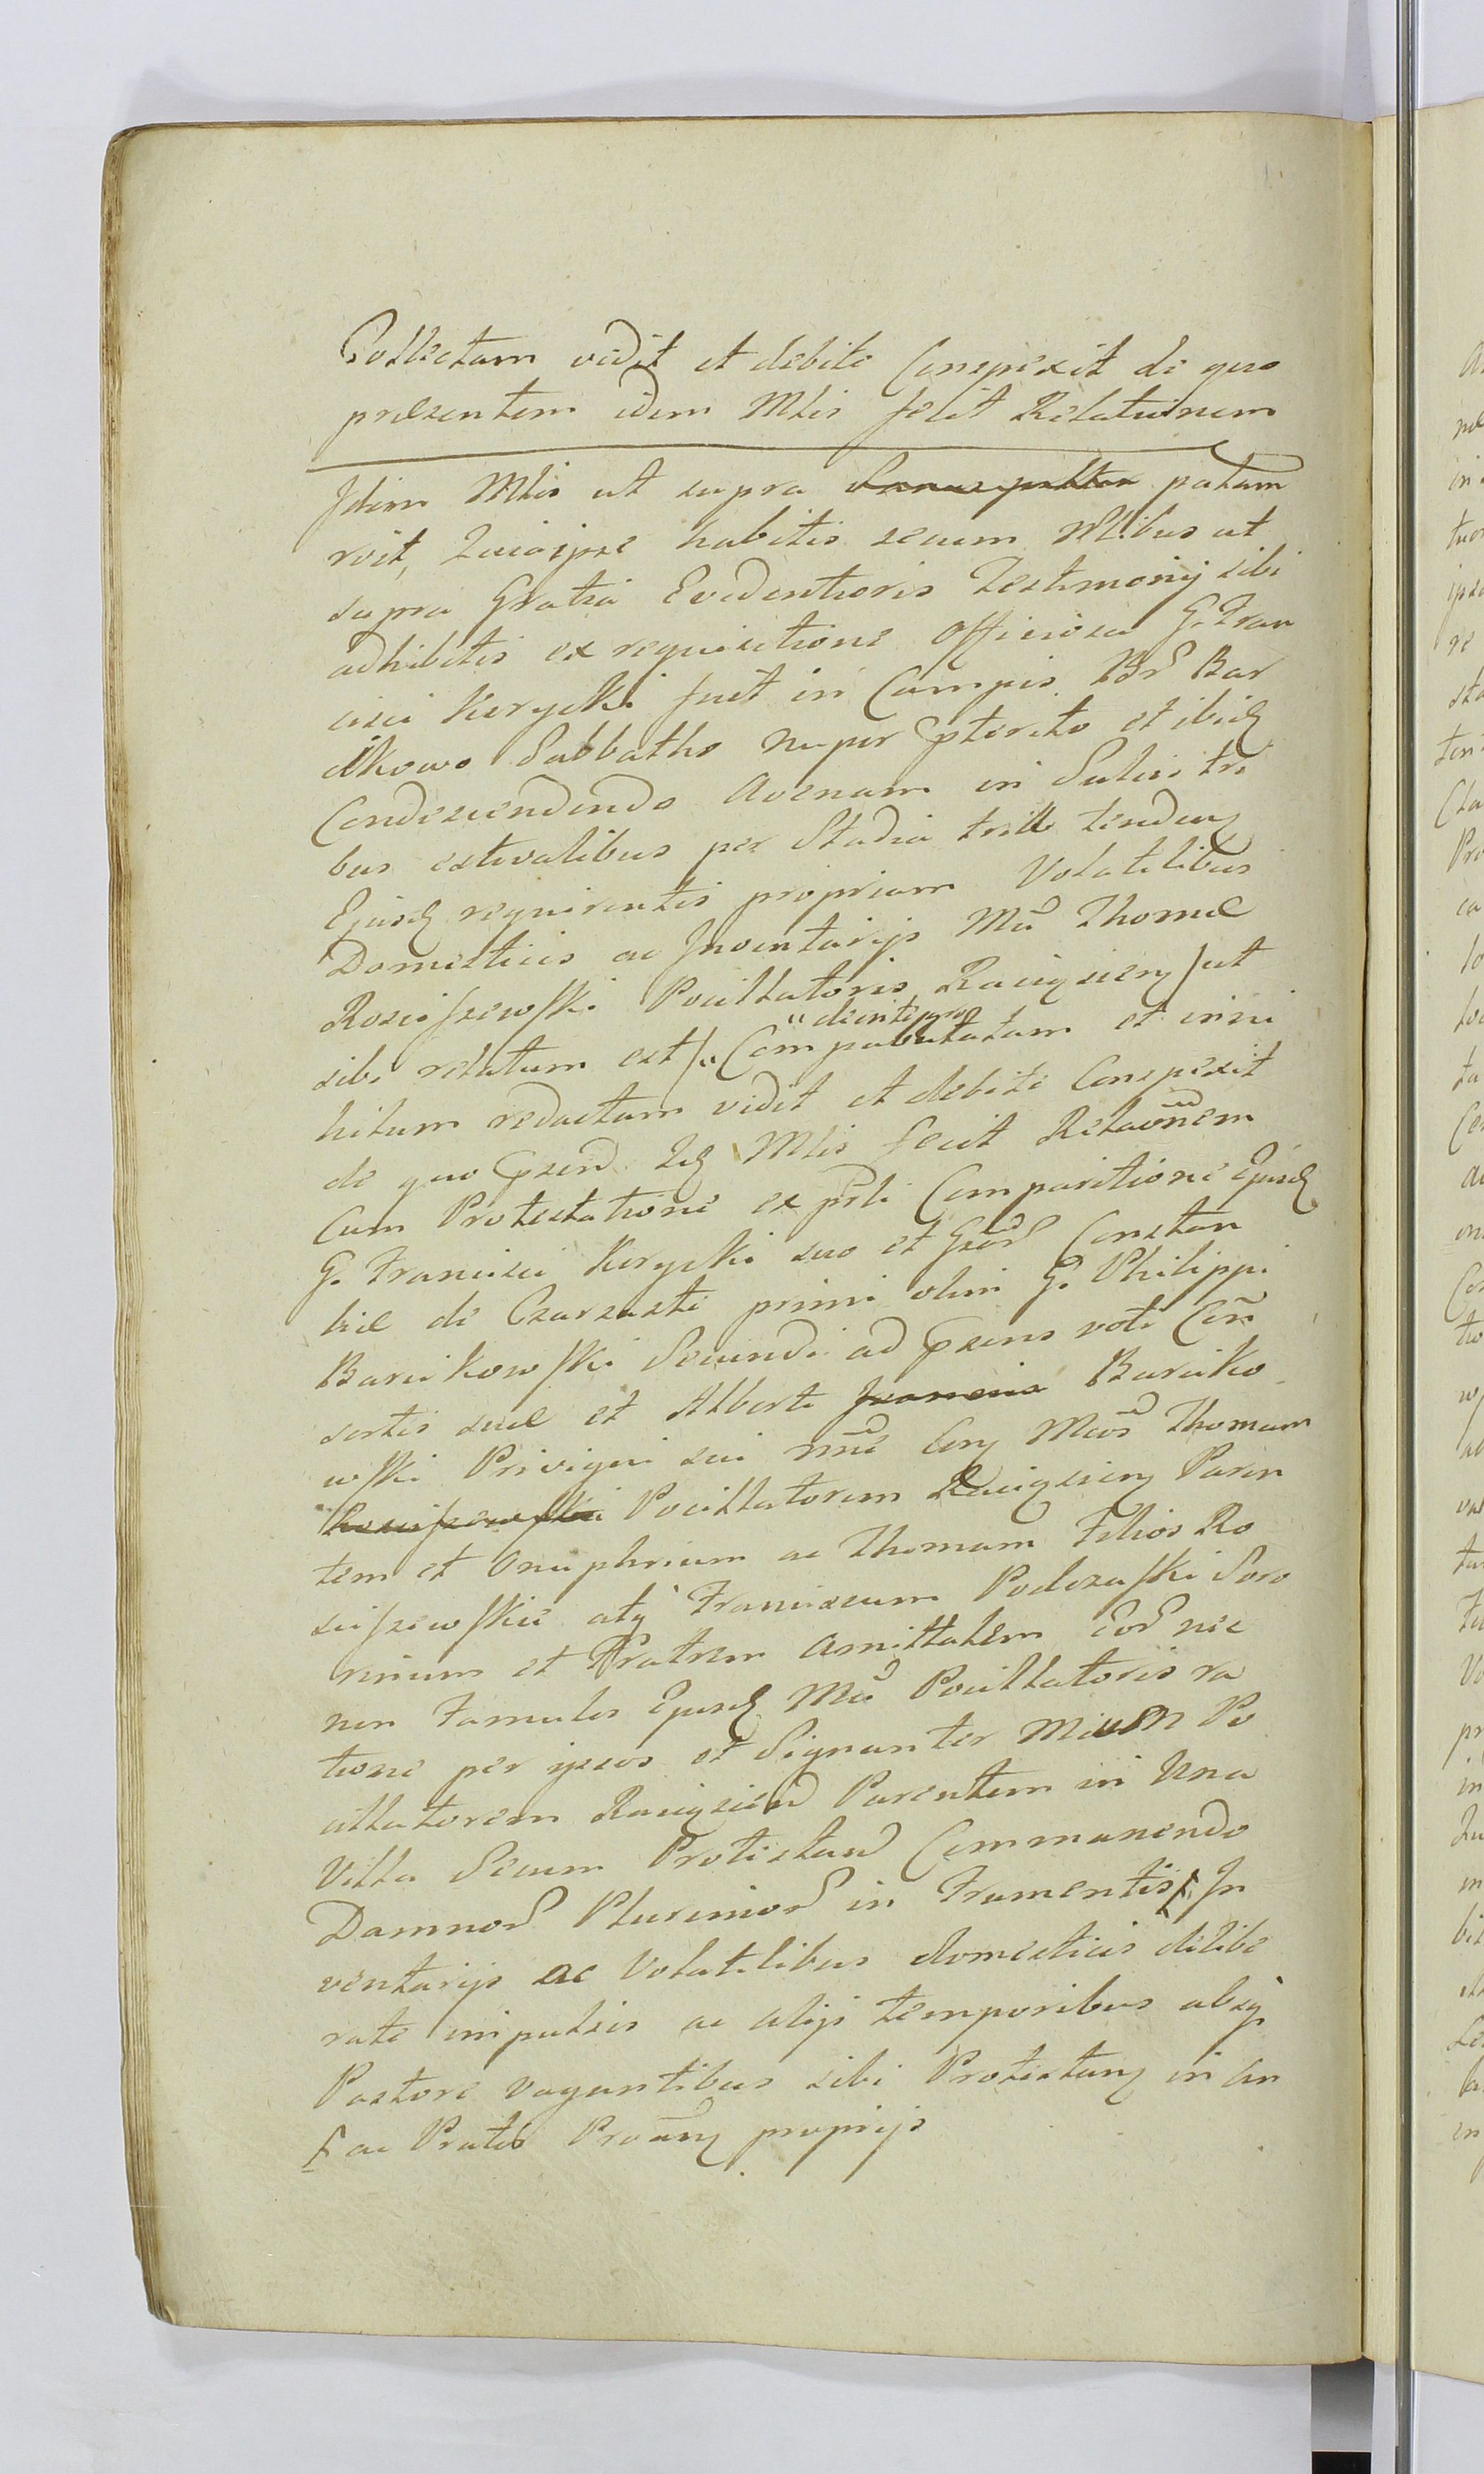 Collectam vidit et debite Conspexit de quo
præsentem idem Mlis fecit Relationem
Idem Mlis ut supra palam
rvit, Quia ipse habitis secum Nlibus ut
supra Gratia Evidentioris Testimonij sibi
adhibitis ex requisitione officiosa G. Fran
cisci Kerycki fuit in Campis Bcr Bar
cikowo Sabbatho nuper pterito et ibidq
Condescendendo Avenam in Sulcis tri
bus estivalibus per Stadia trill tendenq
Ejusdq requirentis propriam Volatilibus
Domesticis ac Inventarijs Mci Thomæ
Rosciszewski Pocillatoris Raciąscien) ut
sibi relatum est) " Compabulatam et inni
" de integro
hilum redactam vidit et debite Conspexit
de quo psend Idq Mlis fecit Relaonem
Cum Protestatione ex prti Comparitione Ejusdq
G. Francisci Kerycki suo et Gsæ Constan
tiæ de Czarzaste primi olim G. Philippi
Barcikowski Secundi ad psens voti Con
sortis suæ et Alberti Barciko
wski Privigni sui nne Con Mcos Thomam
Rosciszewski Pocillatorem Raciąscien Paren
tem et Onuphrium ac Thomam Filios Ro
sciszewskie atq Franciscum Podczaski Soro
rinum et Fratrem Amittalem Eor nec
non Famulos Ejusdq Mci Pocillatoris ra
tione per ipsos et Signanter Mcum Po
cillatorem Raciąscien Parentem in Una
Villa Secum Protestan Commanendo
Damnor Plurimor in Frumentis In
ventarijs ac Volatilibus domesticis delibe
rate impulsis ac alijs temporibus absq
Pastore vagantibus sibi Protestanq in An
ac Pratis Proanq proprijs